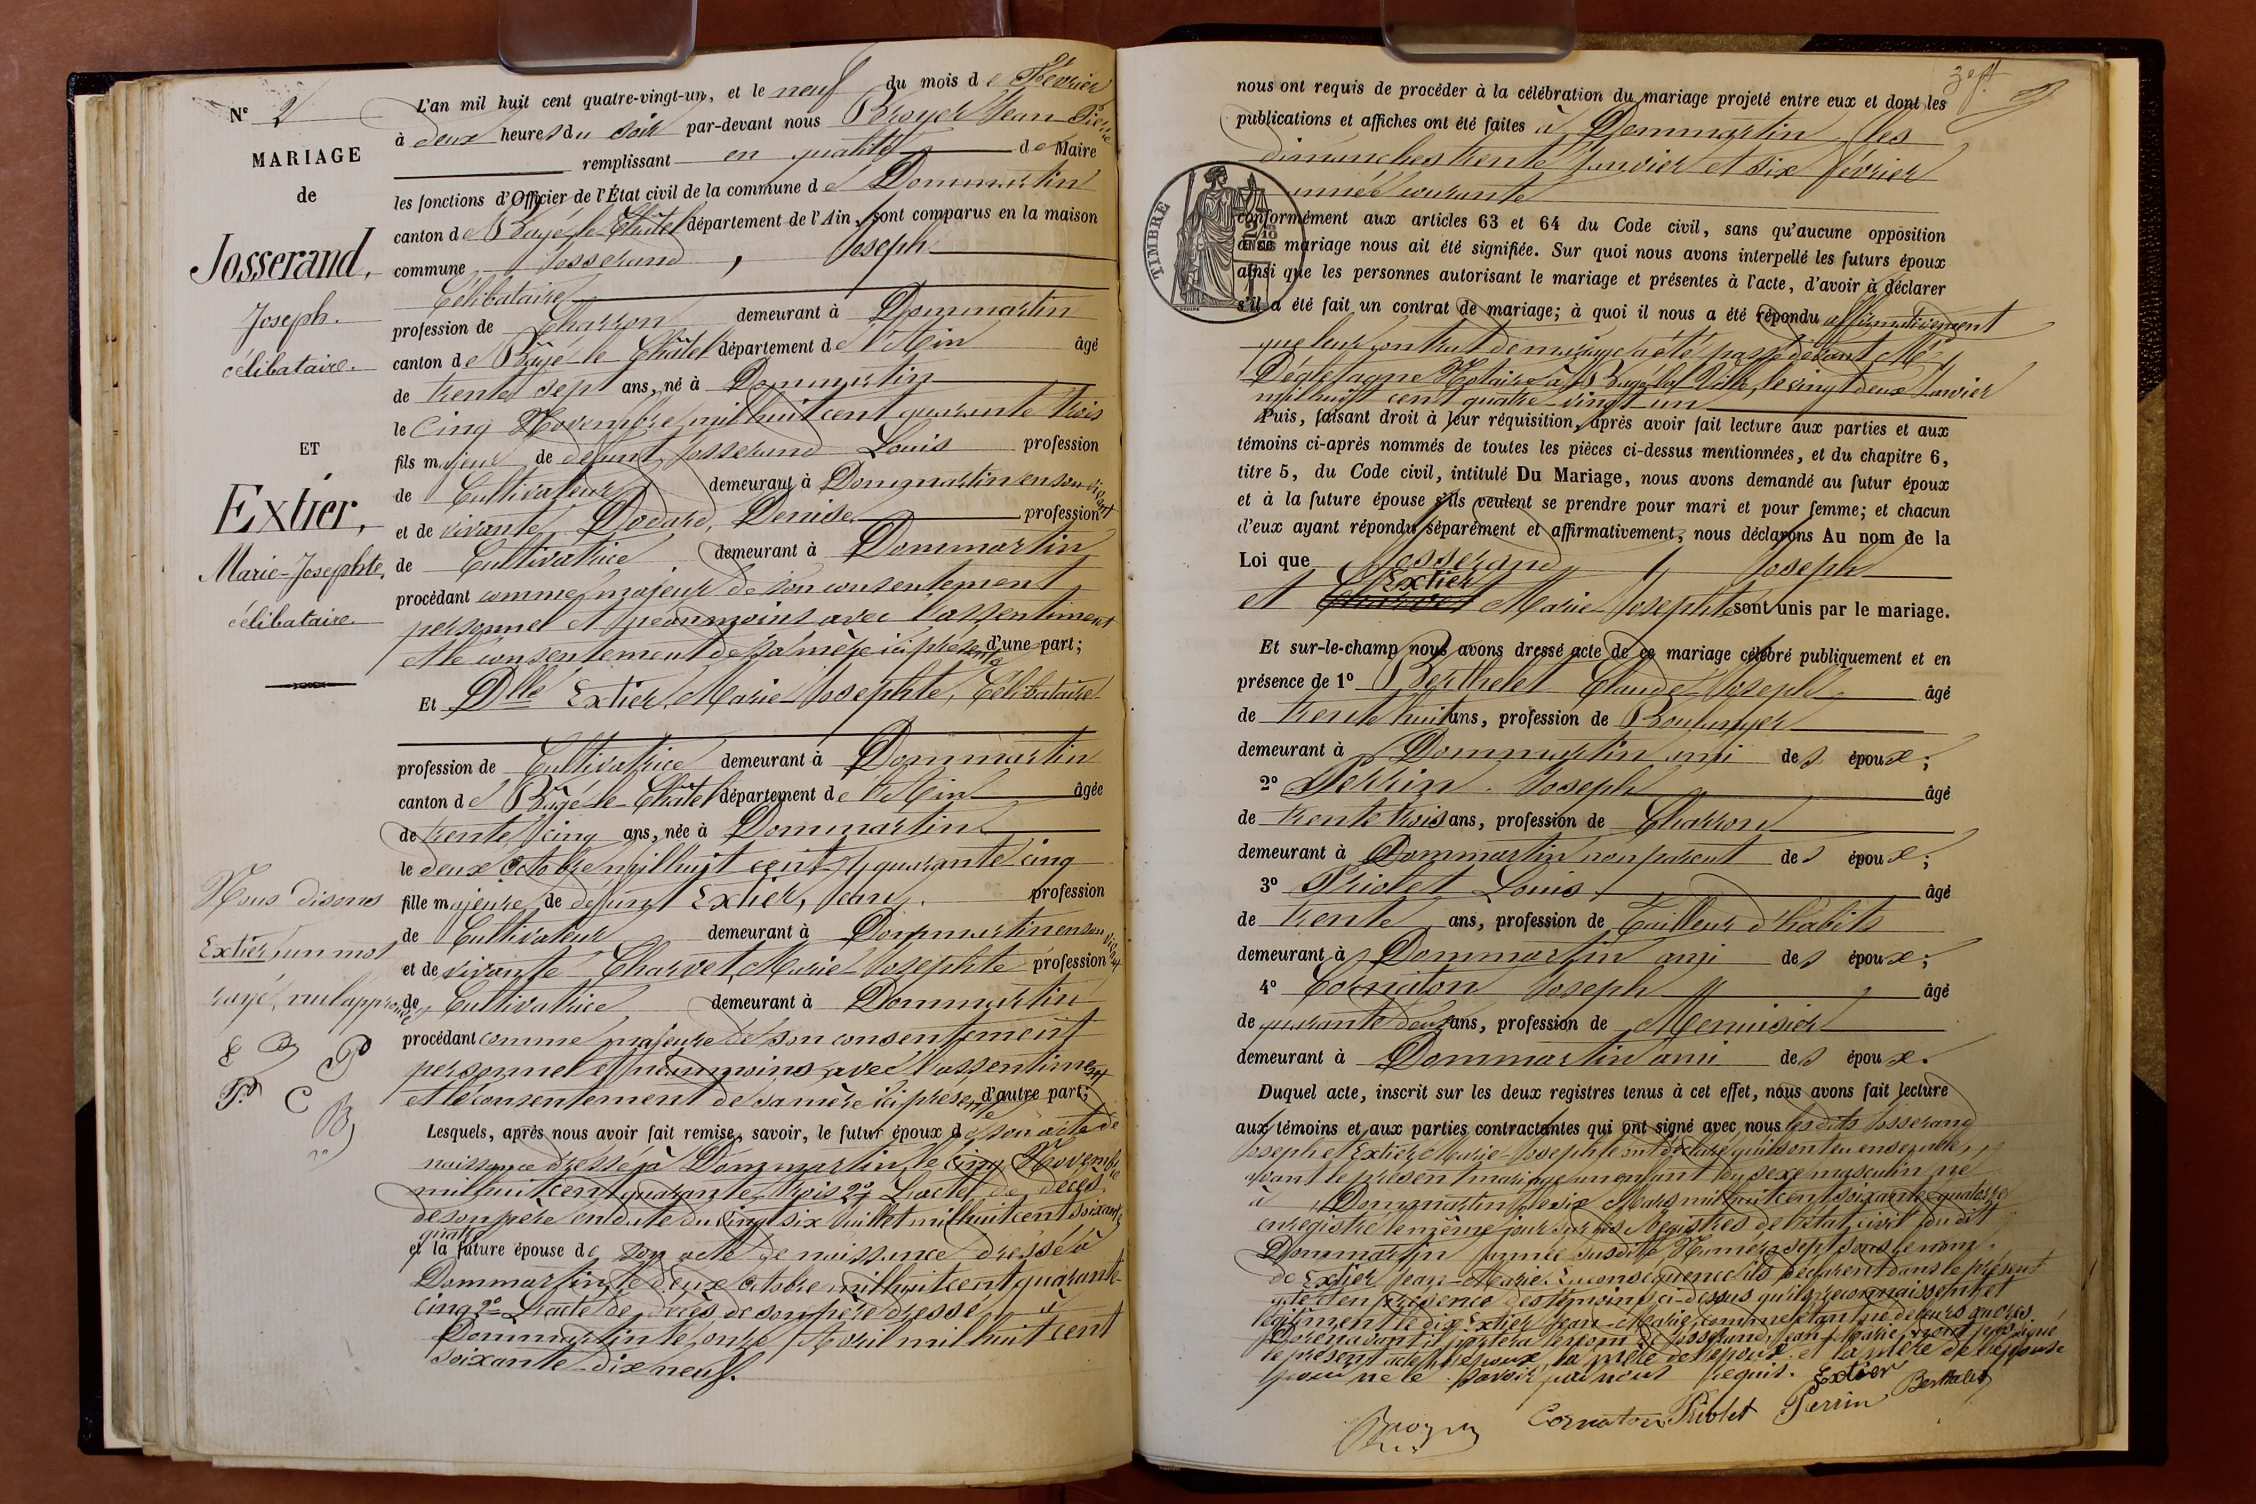 N° 2
MARIAGE
de
Josserand,
Joseph.
célibataire.
ET
Extier,
Marie-Josephte,
célibataire.
Nous disons
Extier, un mot
rayé, nul approuvé
E B P
P. C
B
L'an mil huit cent quatre-vingt-un, et le neuf du mois de Février
à deux heures du soir par-devant nous Broyer Jean Pierre
remplissant en qualité de Maire
les fonctions d'Officier de l'État civil de la commune de Dommartin
canton de Bâgé-le-Châtel département de l'Ain, sont comparus en la maison
commune Josserand, Joseph
Célibataire
profession de Charron demeurant à Dommartin
canton de Bâgé-le-Châtel département de l'Ain âgé
de trente sept ans, né à Dommartin
le Cinq Novembre mil huit cent quarante trois
fils majeur de défunt Josserand Louis profession
de Cultivateur demeurant à Dommartin en son vivant
et de vivante Dodard, Denise profession
de Cultivatrice demeurant à Dommartin
procédant comme majeur de son consentement
personnel et néanmoins avec l'assentiment
et le consentement de sa mère ici présente d'une part;
Et Dlle Extier, Marie-Josephte, Célibataire
profession de Cultivatrice demeurant à Dommartin
canton de Bâgé-le-Châtel département de l'Ain âgée
de trente cinq ans, née à Dommartin
le deux Octobre mil huit cent quarante cinq
fille majeure de défunt Extier, Jean profession
de Cultivateur demeurant à Dommartin en son vivant
et de vivante Charvet, Marie-Josephte profession
de Cultivatrice demeurant à Dommartin
procédant comme majeure de son consentement
personnel et néanmoins avec l'assentiment
et le consentement de sa mère ici présente d'autre part;
Lesquels, après nous avoir fait remise, savoir, le futur époux de son acte de
naissance dressé à Dommartin le cinq Novembre
mil huit cent quarante trois 2° L'acte de décès
de son père en date du vingt six Juillet mil huit cent soixante
quatre
et la future épouse de son acte de naissance dressé à
Dommartin le deux Octobre mil huit cent quarante-
cinq 2° L'acte de décès de son père dressé à
Dommartin le onze Avril mil huit cent
soixante-dix neuf.
nous ont requis de procéder à la célébration du mariage projeté entre eux et dont les
publications et affiches ont été faites à Dommartin les
dimanches trente Janvier et six février
année courante
TIMBRE
conformément aux articles 63 et 64 du Code civil, sans qu'aucune opposition
audit mariage nous ait été signifiée. Sur quoi nous avons interpellé les futurs époux
ainsi que les personnes autorisant le mariage et présentes à l'acte, d'avoir à déclarer
s'il a été fait un contrat de mariage; à quoi il nous a été répondu affirmativement
que leur contrat de mariage a été passé devant Me
Notaire à Bâgé-le-Châtel, le vingt deux Janvier
mil huit cent quatre-vingt-un
Puis, faisant droit à leur réquisition, après avoir fait lecture aux parties et aux
témoins ci-après nommés de toutes les pièces ci-dessus mentionnées, et du chapitre 6,
titre 5, du Code civil, intitulé Du Mariage, nous avons demandé au futur époux
et à la future épouse s'ils veulent se prendre pour mari et pour femme; et chacun
d'eux ayant répondu séparément et affirmativement, nous déclarons Au nom de la
Loi que Josserand, Joseph
Extier
et Charvet Marie Josephte sont unis par le mariage.
Et sur-le-champ nous avons dressé acte de ce mariage célébré publiquement et en
présence de 1° Berthelet Claude Joseph âgé
de trente huit ans, profession de Boulanger
demeurant à Dommartin ami des époux;
2° Perrin Joseph âgé
de trente trois ans, profession de Charron
demeurant à Dommartin non parent des époux;
3° Priolet Louis âgé
de trente ans, profession de Tailleur d'habits
demeurant à Dommartin ami des époux;
4° Cornaton Joseph âgé
de quarante deux ans, profession de Menuisier
demeurant à Dommartin ami des époux.
Duquel acte, inscrit sur les deux registres tenus à cet effet, nous avons fait lecture
aux témoins et aux parties contractantes qui ont signé avec nous les dits Josserand
Joseph et Extier Marie-Josephte ont déclaré qu'ils ont eu ensemble,
avant le présent mariage un enfant du sexe masculin né
à Dommartin le six Mars mil huit cent soixante-quatorze
enregistré le même jour sur les Registres de l'état civil du dit
Dommartin année susdite Numéro sept sous le nom
de Extier Jean-Marie. En conséquence ils déclarent dans le présent
acte et en présence des témoins ci-dessus qu'ils reconnaissent et
légitiment le dit Extier Jean-Marie, comme étant né de leurs œuvres.
Dorénavant il portera le nom de Josserand, Jean-Marie, n'ont pas signé
le présent acte l'époux, la mère de l'époux et la mère de l'épouse
pour ne le savoir, par nous requis. Extier Berthelet
Cornaton Priolet Perrin
Broyer